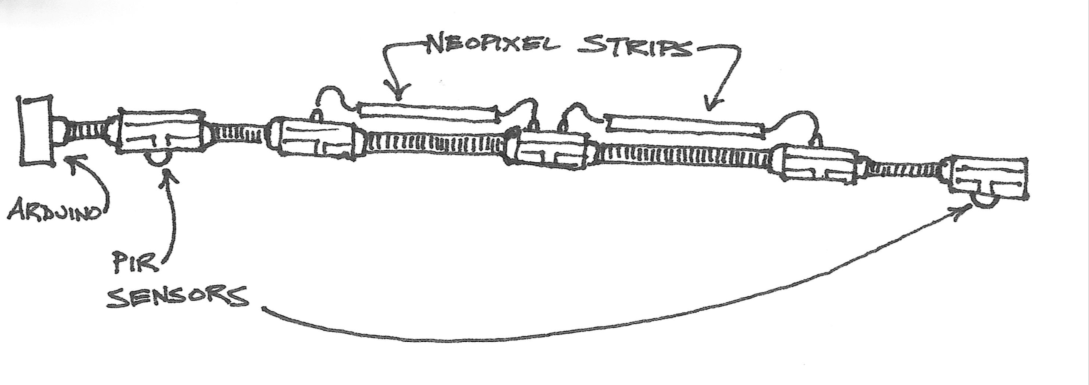 NEOPIXEL STRIPS
ARDUINO
PIR
SENSORS